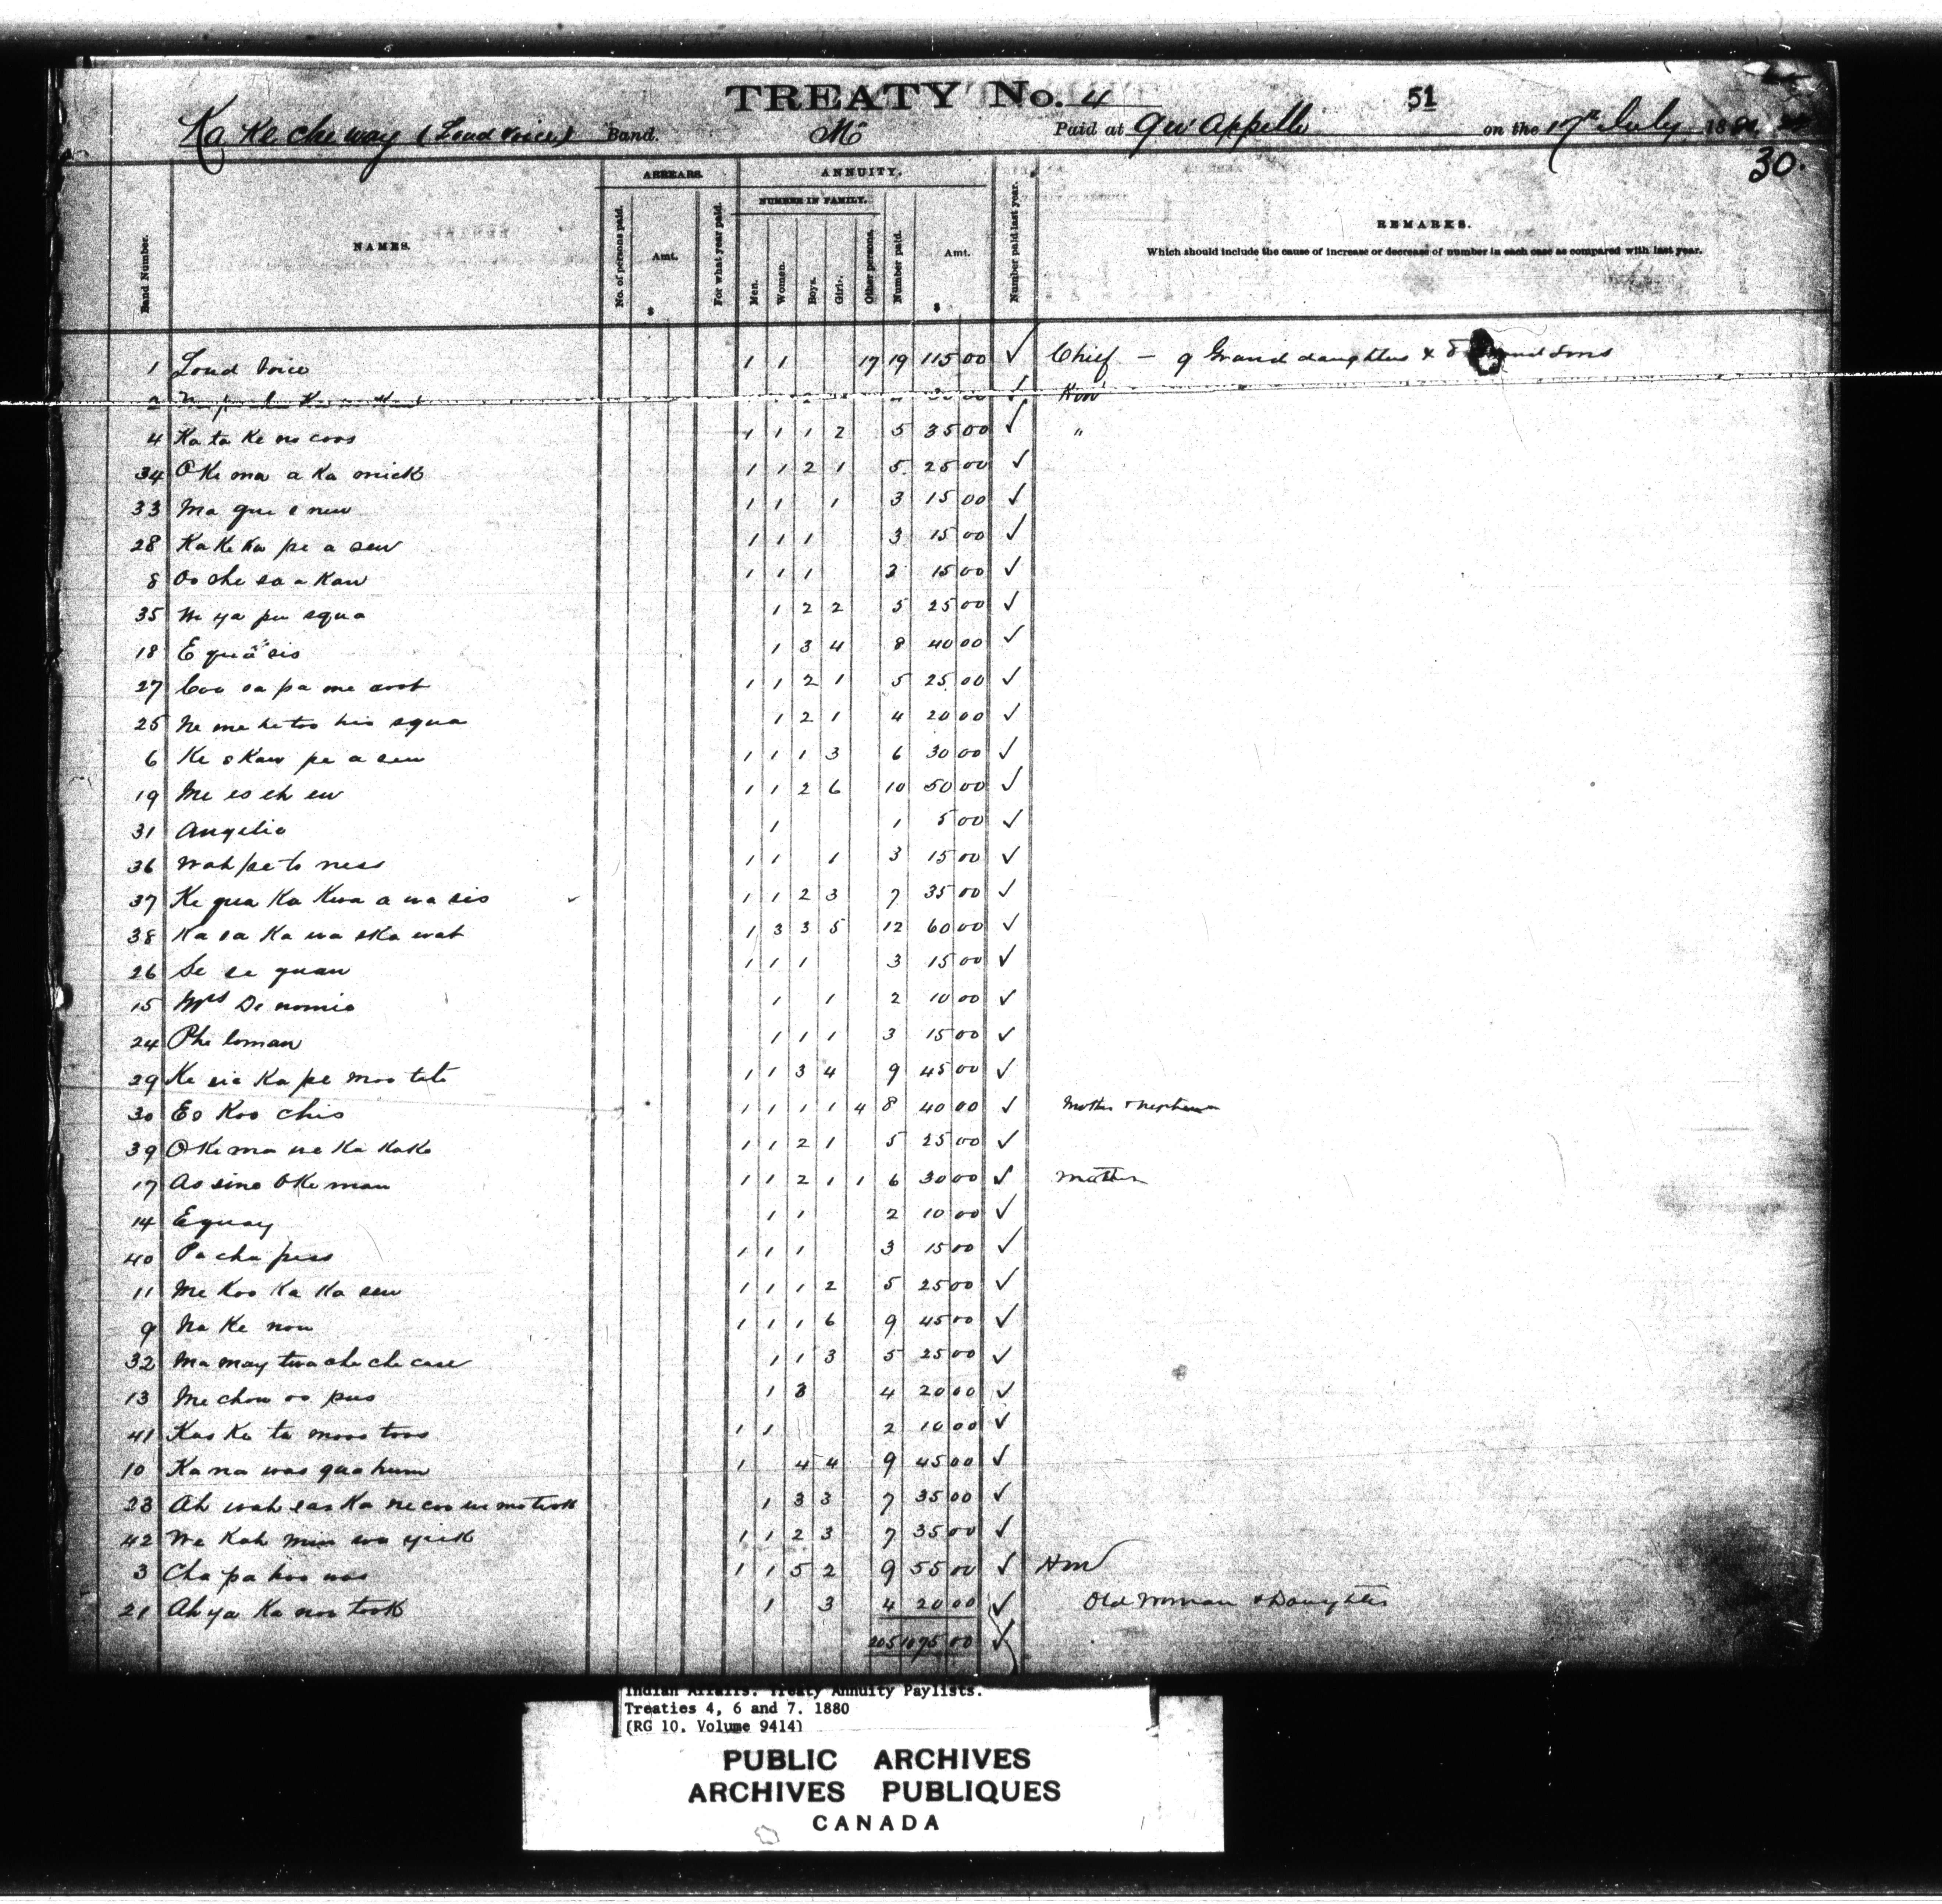 TREATY No. 4
51
Ka Ke che way (Loud Voice) Band. Paid at Qu'Appelle on the 17th July 18
30.
ARREARS. ANNUITY.
NUMBER IN FAMILY.
Band Number. NAMES. No. of persons paid. Amt. $ For what year paid. Men. Women. Boys. Girls. Other persons. Number paid. Amt. $ Number paid last year. REMARKS.
Which should include the cause of increase or decrease of number in each case as compared with last year.
1 Loud Voice 1 1 17 19 115 00 ✓ Chief — 9 Grand daughters & 8 Grand Sons
2 ✓
4 Ka ta Ke no coos 1 1 1 2 5 35 00 ✓ "
34 O Ke ma a Ka mick 1 1 2 1 5 25 00 ✓
33 Ma que e new 1 1 1 3 15 00 ✓
28 Ka Ke Ka pe a sew 1 1 1 3 15 00 ✓
8 Oo che sa a Kaw 1 1 1 3 15 00 ✓
35 We ya pu squa 1 2 2 5 25 00 ✓
18 E qua sis 1 3 4 8 40 00 ✓
27 Coo sa pa me coot 1 1 2 1 5 25 00 ✓
25 Ne me he too his squa 1 2 1 4 20 00 ✓
6 Ke s Kaw pe a sew 1 1 1 3 6 30 00 ✓
19 Me es eh ew 1 1 2 6 10 50 00 ✓
31 Angelic 1 1 5 00 ✓
36 Wah pe to ness 1 1 1 3 15 00 ✓
37 Ke qua Ka Kwa a wa sis 1 1 2 3 7 35 00 ✓
38 Ka sa Ka wa ska wat 1 3 3 5 12 60 00 ✓
26 Se se quan 1 1 1 3 15 00 ✓
15 Mrs De nomie 1 1 2 10 00 ✓
24 Phe loman 1 1 1 3 15 00 ✓
29 Ke sic Ka pe moo tete 1 1 3 4 9 45 00 ✓
30 Es Koo chis 1 1 1 1 4 8 40 00 ✓ Mother & Nephews
39 O Ke ma we Ka Kake 1 1 2 1 5 25 00 ✓
17 As sine O Ke man 1 1 2 1 1 6 30 00 ✓ Mother
14 Equay 1 1 2 10 00 ✓
40 Pa cha pess 1 1 1 3 15 00 ✓
11 Me Koo Ka Ka sew 1 1 1 2 5 25 00 ✓
9 Na Ke now 1 1 1 6 9 45 00 ✓
32 Ma may twa che che case 1 1 3 5 25 00 ✓
13 Me chow oo pus 1 3 4 20 00 ✓
41 Kas Ke ta moos toos 1 1 2 10 00 ✓
10 Ka na was qua hum 1 4 4 9 45 00 ✓
23 Ah wah sas Ka ne coo we mo took 1 3 3 7 35 00 ✓
42 We Kah min wa yick 1 1 2 3 7 35 00 ✓
3 Cha pa hoo was 1 1 5 2 9 55 00 ✓ Hm
21 Ah ya Ka noo took 1 3 4 20 00 ✓ Old Woman & Daughters
205 1075 00 ✓
Indian Affairs. Treaty Annuity Paylists.
Treaties 4, 6 and 7. 1880
(RG 10. Volume 9414)
PUBLIC ARCHIVES
ARCHIVES PUBLIQUES
CANADA